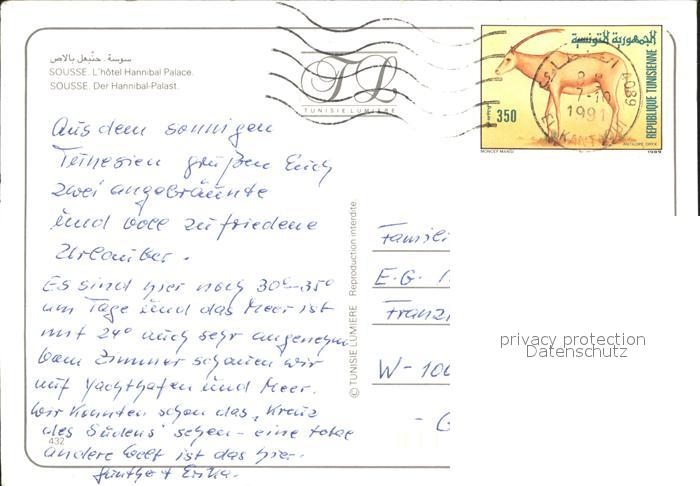 سوسة. حنبعل بالاص
SOUSSE. L'hôtel Hannibal Palace.
SOUSSE. Der Hannibal-Palast.
TL
TUNISIE LUMIERE
الجمهورية التونسية
REPUBLIQUE TUNISIENNE
350
7-10
1991
4089
EL KANTAOUI
MONCEF MANSI
ANTILOPE ORYX
1989
Aus dem sonnigen
Tunesien grüßen Euch
zwei angebräunte
und voll zufriedene
Urlauber.
Es sind hier noch 30°-35°
am Tage und das Meer ist
mit 24° auch sehr angenehm
vom Zimmer schauen wir
auf Yachthafen und Meer.
Wir konnten schon das "Kreuz
des Südens" sehen - eine totale
andere Welt ist das hier.
Günther + Erika.
432
© TUNISIE LUMIERE Reproduction interdite
Famili
E.G.
Franz
W-100
- G
privacy protection
Datenschutz